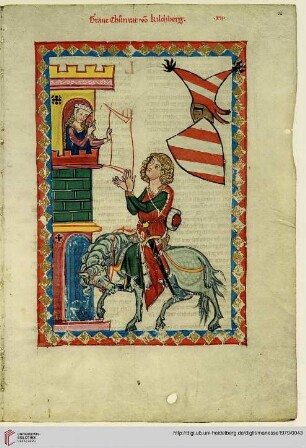 Graue Chůnrat vō kilchberg.
.viii.
UNIVERSITÄTS-
BIBLIOTHEK
HEIDELBERG
http://digi.ub.uni-heidelberg.de/diglit/manesse1975/0043